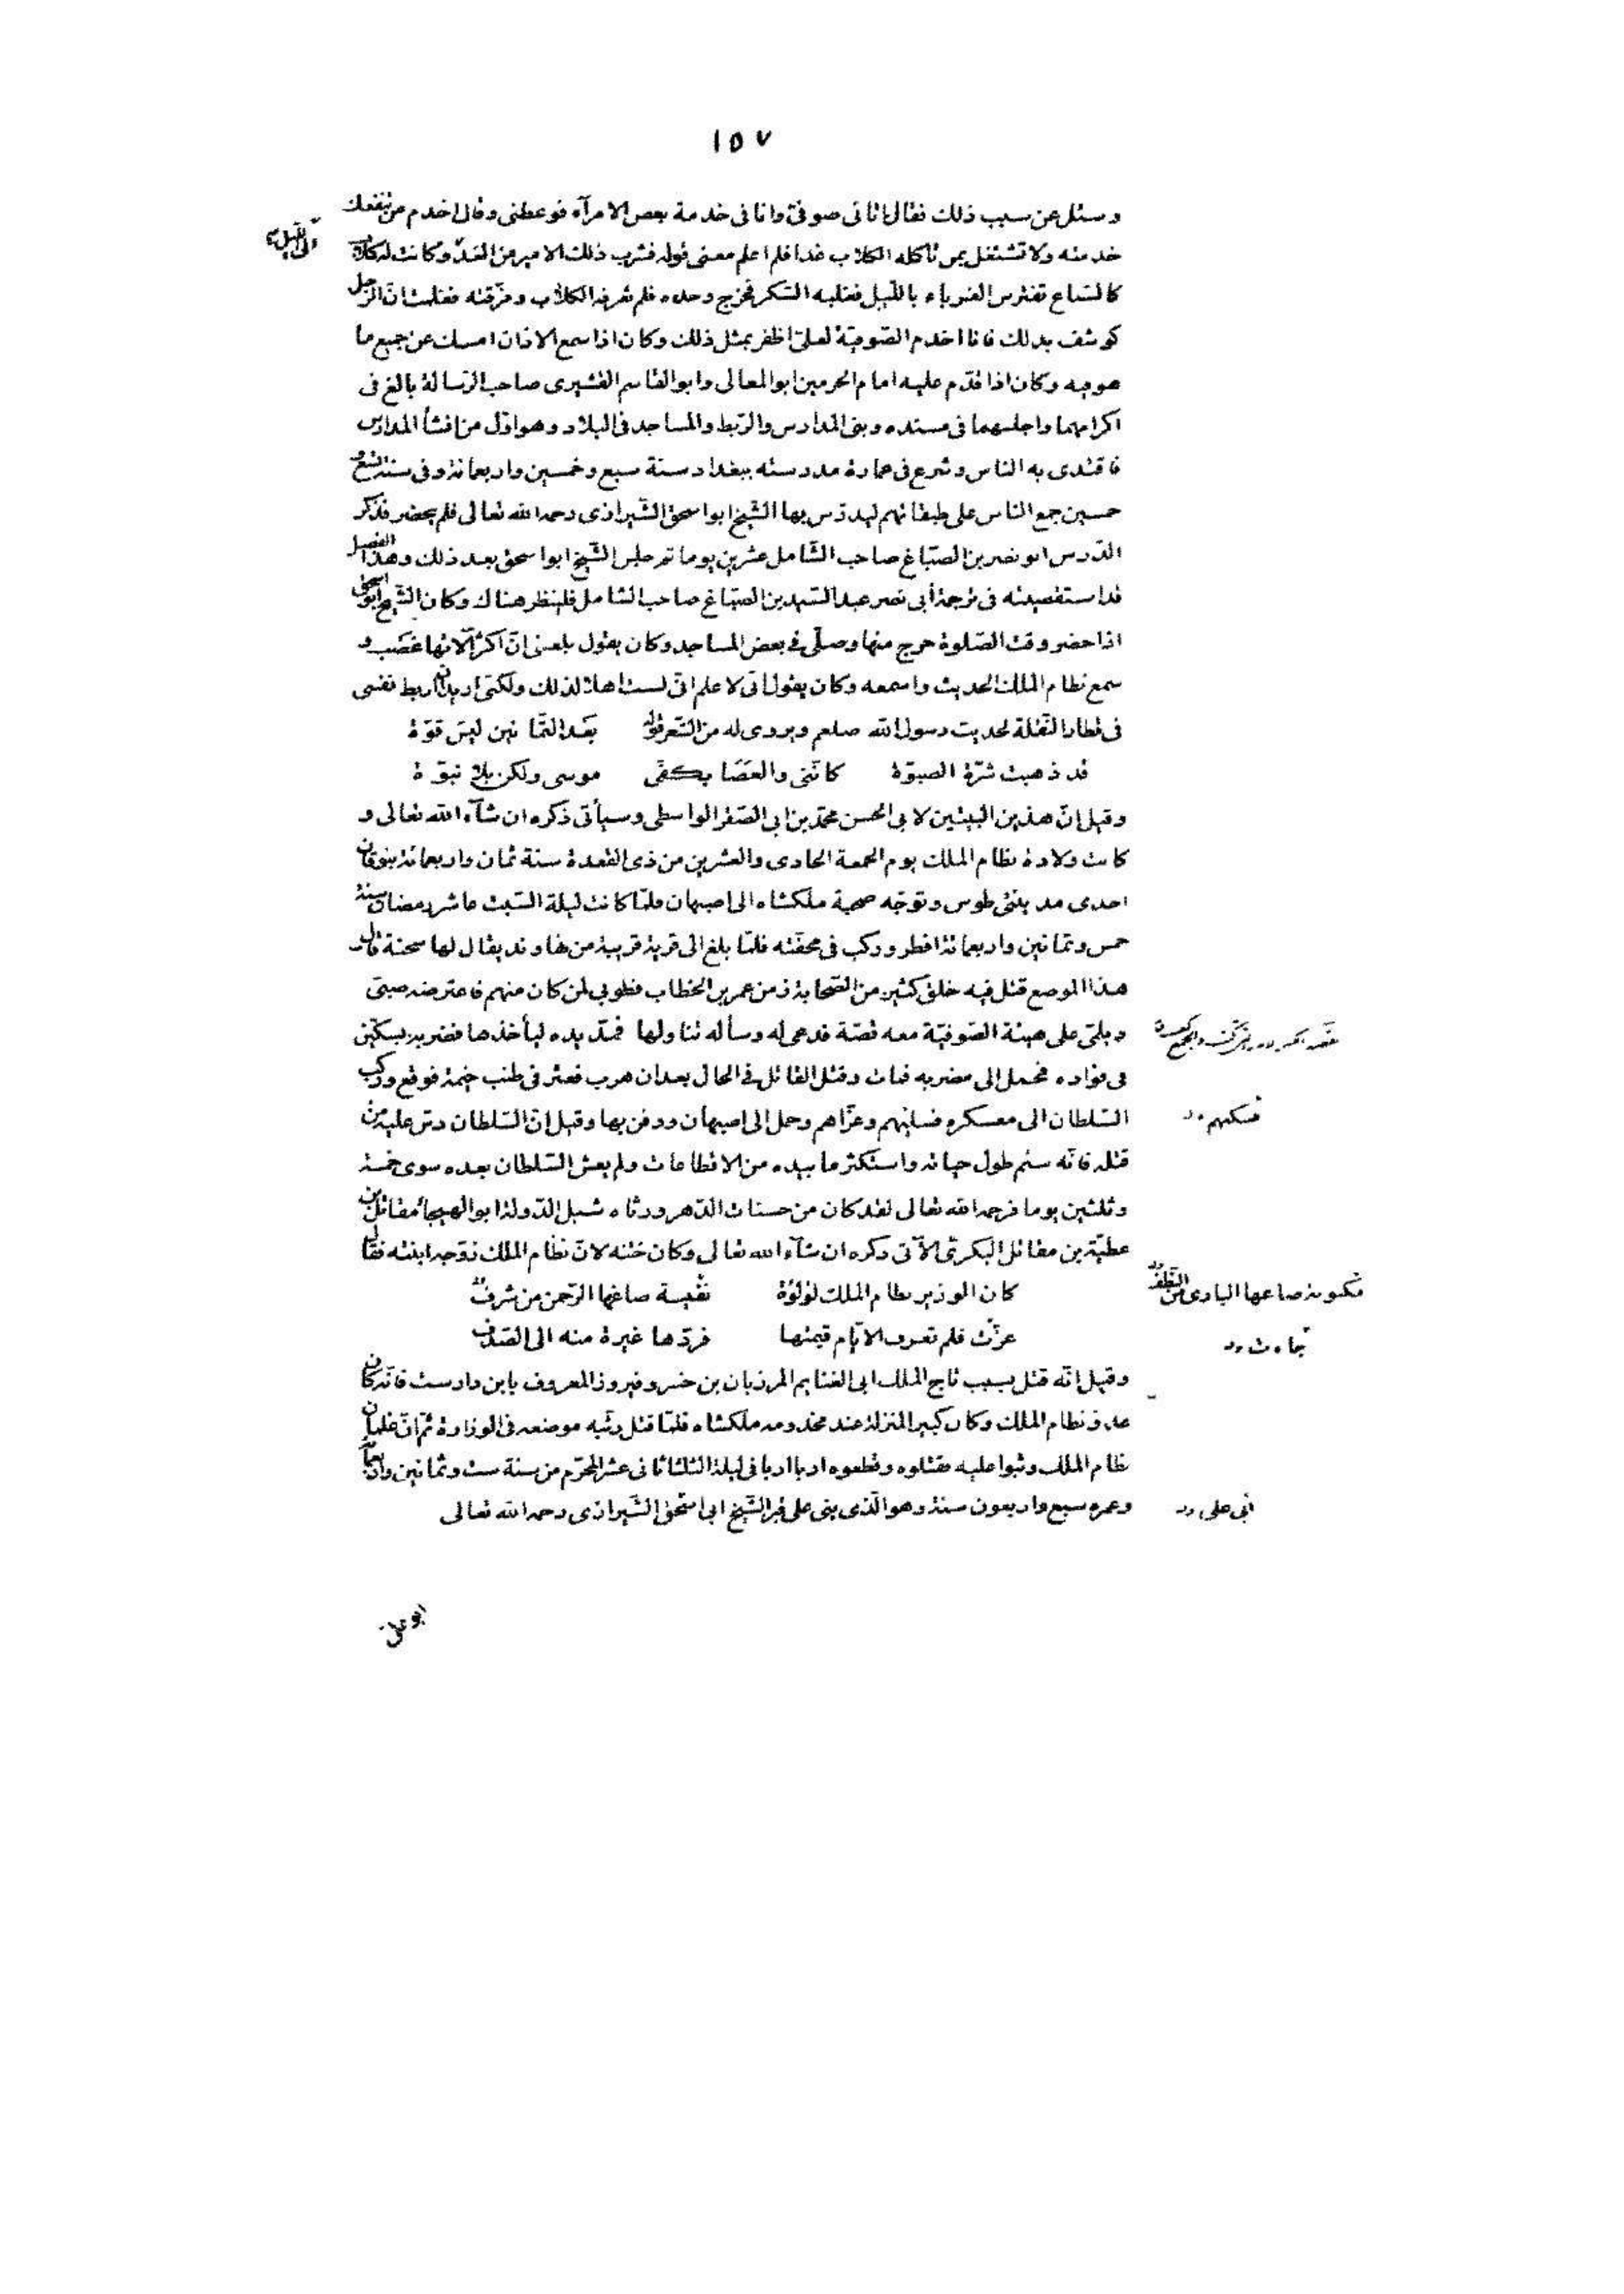 ١٥٧
وسئل عن سبب ذلك فقال اتانى صوفى وانا فى خدمة بعض الامرآء فوعظنى وقال اخدم من تنفعك
خدمته ولا تشتغل بمن تأكله الكلاب غدا فلم اعلم معنى قوله فشرب ذلك الامير من الغد وكانت له كلاب
الى الليل
كالسّباع تفترس الغرباء باللّيل فغلبه السّكر فخرج وحده فلم تعرفه الكلاب ومزّقته فعلمت انّ الرّجل
كوشف بذلك فانا اخدم الصّوفيّة لعلّى اظفر بمثل ذلك وكان اذا سمع الاذان امسك عن جميع ما
هو فيه وكان اذا قدم عليه امام الحرمين ابو المعالى وابو القاسم القشيرى صاحب الرّسالة بالغ فى
اكرامهما واجلسهما فى مسنده وبنى المدارس والرّبط والمساجد فى البلاد وهو اوّل من انشأ المدارس
فاقتدى به النّاس وشرع فى عمارة مدرسته ببغداد سنة سبع وخمسين واربعمائة وفى سنة تسع و
خمسين جمع النّاس على طبقاتهم ليدرّس بها الشّيخ ابو اسحق الشّيرازى رحمه الله تعالى فلم يحضر فذكر
الدّرس ابو نصر بن الصبّاغ صاحب الشّامل عشرين يوما ثم جلس الشّيخ ابو اسحق بعد ذلك وهذا الفصل
قد استقصيته فى ترجمة أبى نصر عبد السّيد بن الصبّاغ صاحب الشّامل فلينظر هناك وكان الشّيخ ابو اسحق
اذا حضر وقت الصّلوة خرج منها وصلّى فى بعض المساجد وكان يقول بلغنى انّ اكثر آلاتها غصب و
سمع نظام الملك الحديث واسمعه وكان يقول انّى لاعلم انّى لست اهلا لذلك ولكنّى اريد ان اربط نفسى
فى قطار النّقلة لحديث رسول الله صلعم ويروى له من الشّعر قوله بعد الثّمانين ليس قوّة
قد ذهبت شرّة الصبوّة كانّنى والعصا بكفّى موسى ولكن بلا نبوّة
وقيل انّ هذين البيتين لابى الحسن محمّد بن ابى الصّقر الواسطى وسيأتى ذكره ان شآء الله تعالى و
كانت ولادة نظام الملك يوم الجمعة الحادى والعشرين من ذى القعدة سنة ثمان واربعمائة بنوقان
احدى مدينتى طوس وتوجّه صحبة ملكشاه الى اصبهان فلمّا كانت ليلة السّبت عاشر رمضان سنة
خمس وثمانين واربعمائة افطر وركب فى محفّته فلمّا بلغ الى قرية قريبة من نهاوند يقال لها سحنة قال
هذا الموضع قتل فيه خلق كثير من الصّحابة زمن عمر بن الخطاب فطوبى لمن كان منهم فاعترضه صبىّ
ديلمى على هيئة الصّوفيّة معه قصّة فدعى له وسأله تناولها فمدّ يده ليأخذها فضربه بسكّين
فى فؤاده فحمل الى مضربه فمات وقتل القاتل فى الحال بعد ان هرب فعثر فى طنب خيمة فوقع وركب
السّلطان الى معسكره فسلّيهم وعزّاهم وحمل الى اصبهان ودفن بها وقيل انّ السّلطان دسّ عليه من
فسكنهم
قتله فانّه سئم طول حياته واستكثر ما بيده من الاقطاعات ولم يعش السّلطان بعده سوى خمسة
وثلثين يوما فرحمه الله تعالى لقد كان من حسنات الدّهر ورثاه شبل الدّولة ابو الهيجآء مقاتل بن
عطيّة بن مقاتل البكرىّ الآتى ذكره ان شآء الله تعالى وكان ختنه لانّ نظام الملك زوّجه ابنته فقال
كان الوزير نظام الملك لؤلؤة نفيسة صاغها الرّحمن من شرف
مكنونة صاغها البارى من النّطف
عزّت فلم تعرف الايّام قيمتها فردّها غيرة منه الى الصّدف
جاءت
وقيل انّه قتل بسبب تاج الملك ابى الغنايم المرزبان بن خسرو فيروز المعروف بابن دارست فانّه كان
عدوّ نظام الملك وكان كبير المنزلة عند مخدومه ملكشاه فلمّا قتل رتّبه موضعه فى الوزارة ثمّ انّ غلمان
نظام الملك وثبوا عليه فقتلوه وقطعوه اربا اربا فى ليلة الثلثا ثانى عشر المحرّم من سنة ست وثمانين واربعمائة
وعمره سبع واربعون سنة وهو الّذى بنى على قبر الشّيخ ابى اسحق الشّيرازى رحمه الله تعالى
أبى على
ابو على